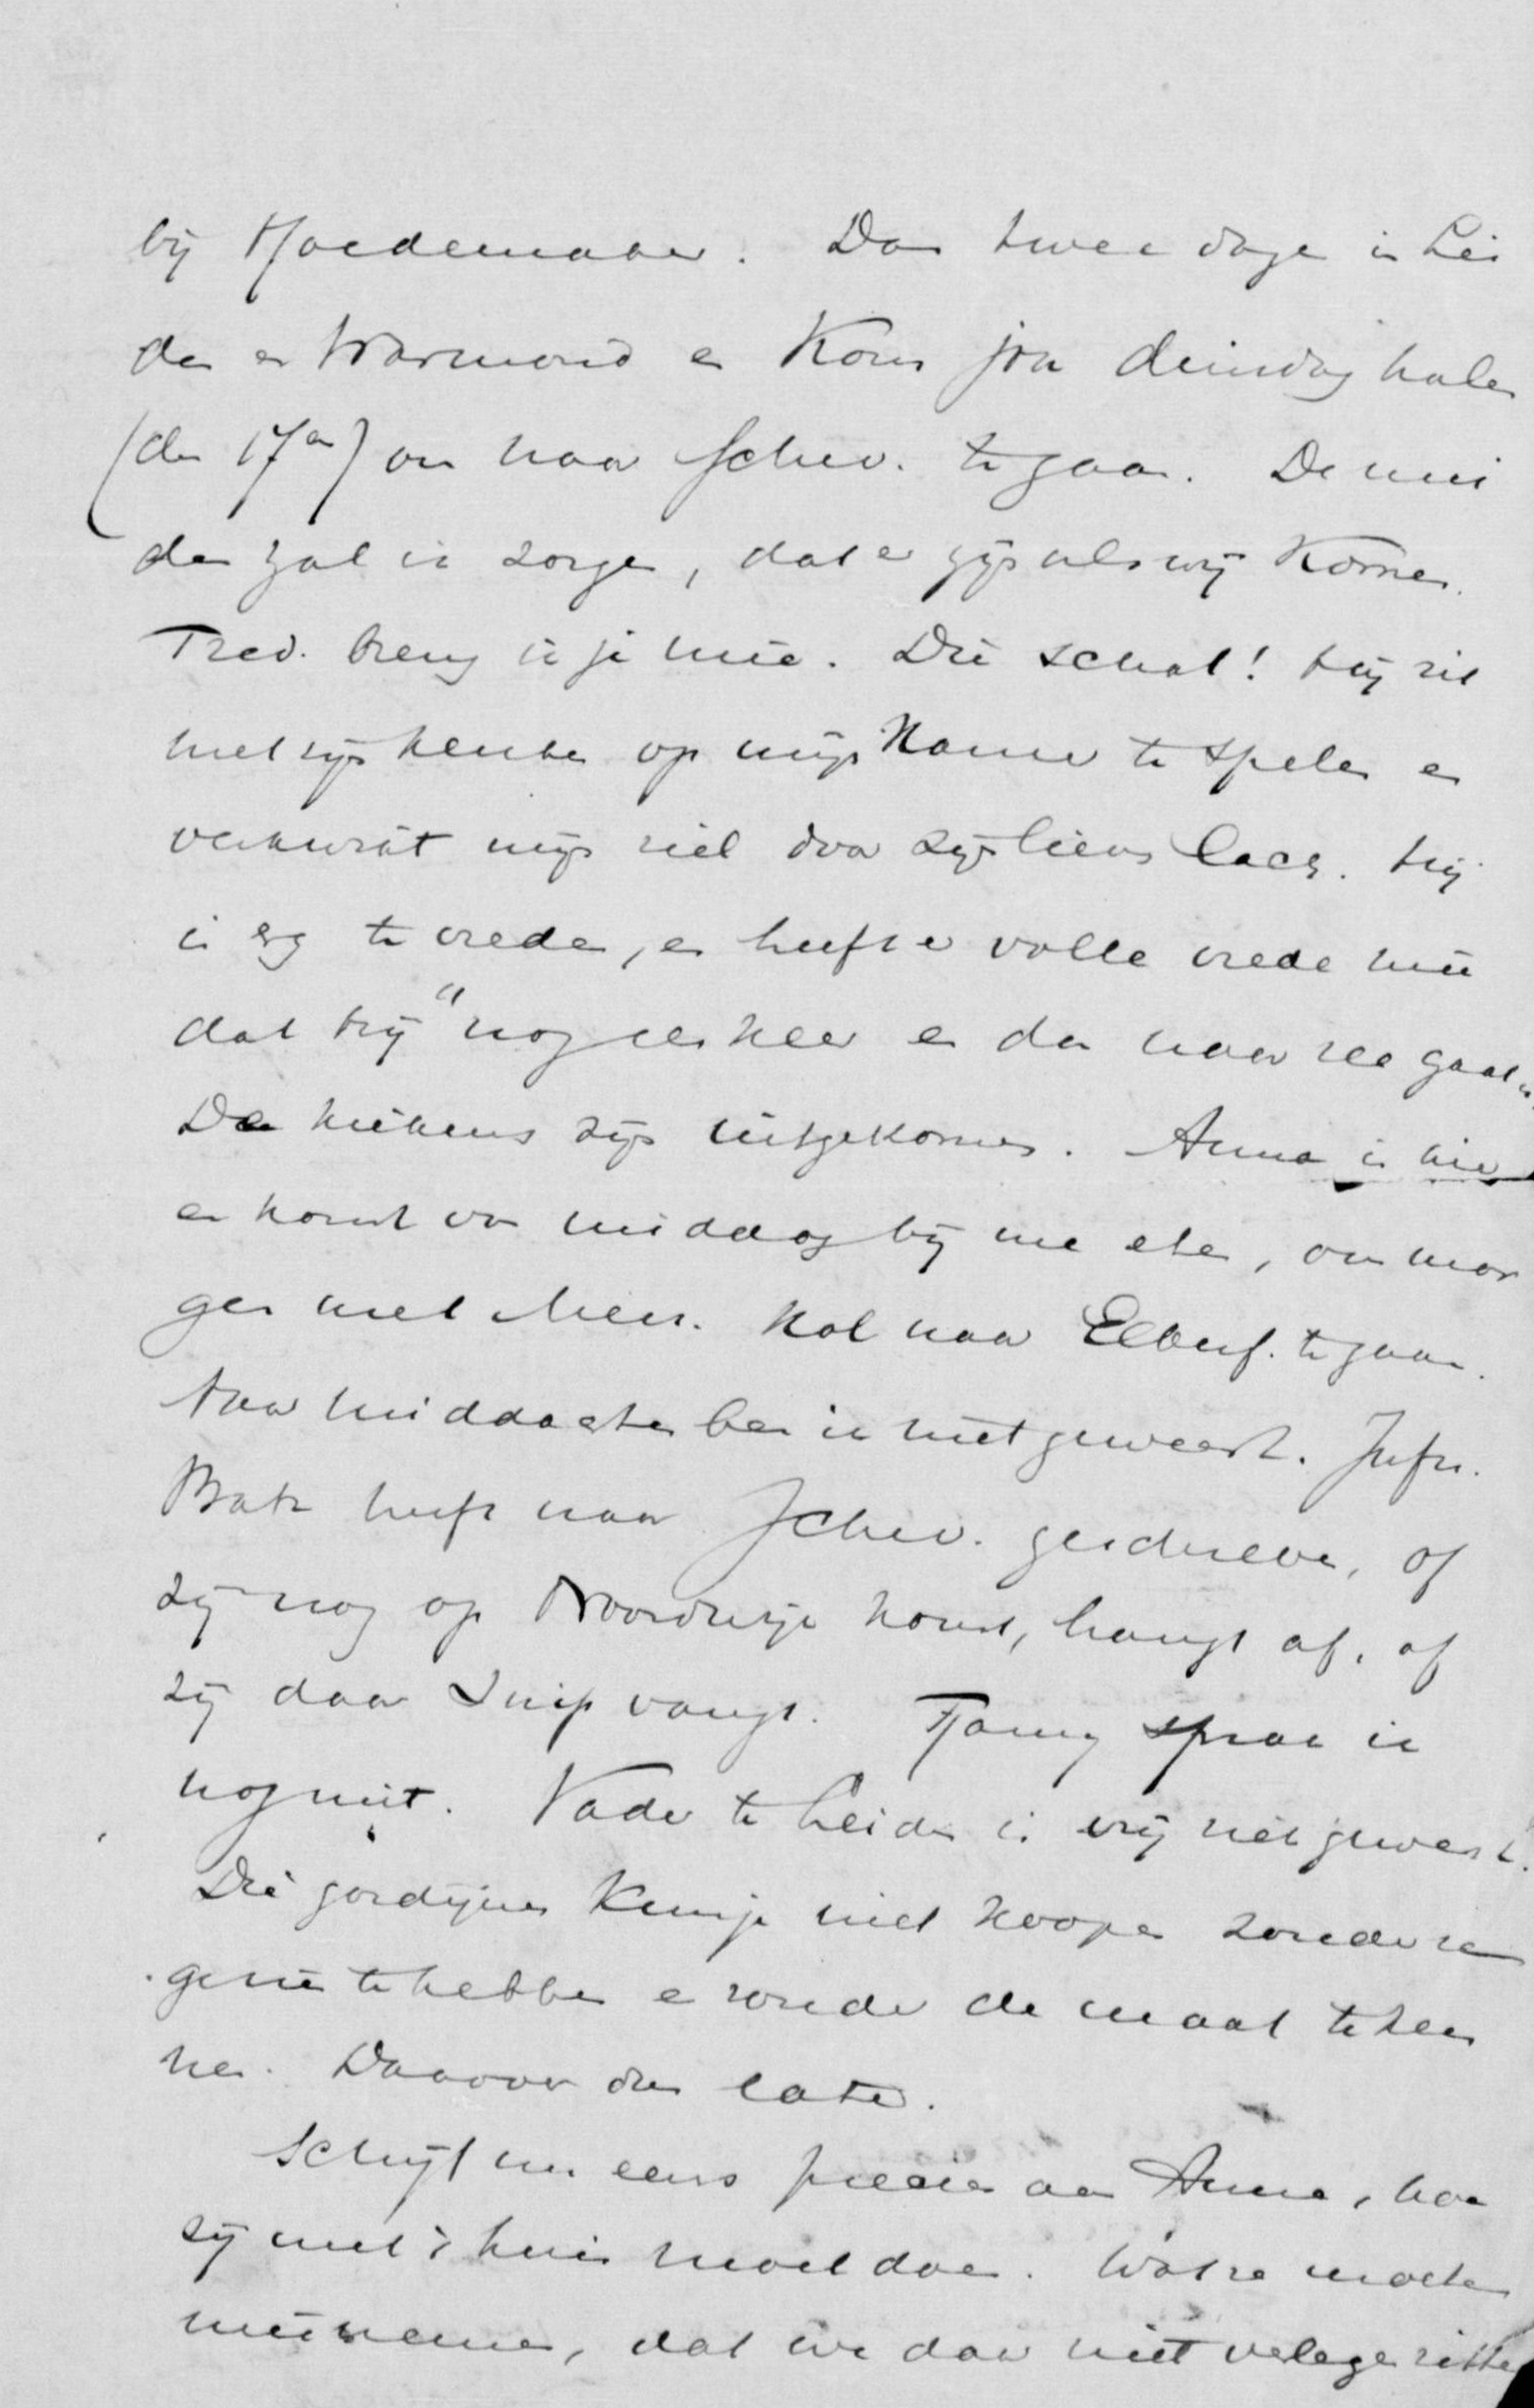 bij Hoedemaker. Dan twee dagen in Lei
den en Warmond en kom jou dinsdag halen
(den 17en) om naar Schev. te gaan. De mei
den zal ik zorgen, dat er zijn als wij komen.
Fred. breng ik je mee. Die schat! Hij zit
met zijn keuken op mijn kamer te spelen en
verkwikt mijn ziel door zijn lieven lach. Hij
is erg te vrede, en heeft er volle vrede mee
dat hij "nog een keer en dan naar zee gaat".
De kiekens zijn uitgekomen. Anna is hier
en komt van middag bij me eten, om mor
gen met Mevr. Kol naar Elberf. te gaan.
Naar Middachten ben ik niet geweest. Jufr.
heeft naar Schev. geschreven, of
zij nog op Noordwijk komt, hangt af, of
zij daar Snip vangt. Fanny sprak ik
nog niet. Vader te Leiden is vrij ziek geweest.
Die gordijnen kun je niet koopen zonder ze
gezien te hebben en zonder de maat te ken
nen. Daarover dus later.
Schrijf nu eens precies aan Anna, hoe
zij met 't huis moet doen. Wat ze moeten
meenemen, dat we daar niet verlegen zitten